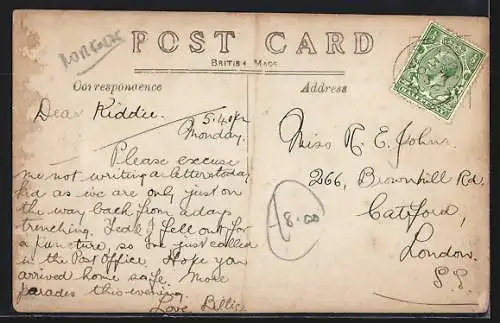 POST CARD
BRITISH MADE
Correspondence
Address
Dear Kiddie.
5.40pm
Monday.
Please excuse
me not writing a letter today
Kid as we are only just on
the way back from a days
trenching. Ted & I fell out for
a puncture, so we just called
in the Post Office. Hope you
arrived home safe. More
parades this evening.
Love Billie
Miss R. E. John.
266, Brownhill Rd.
Catford,
London.
S.E.
18.00